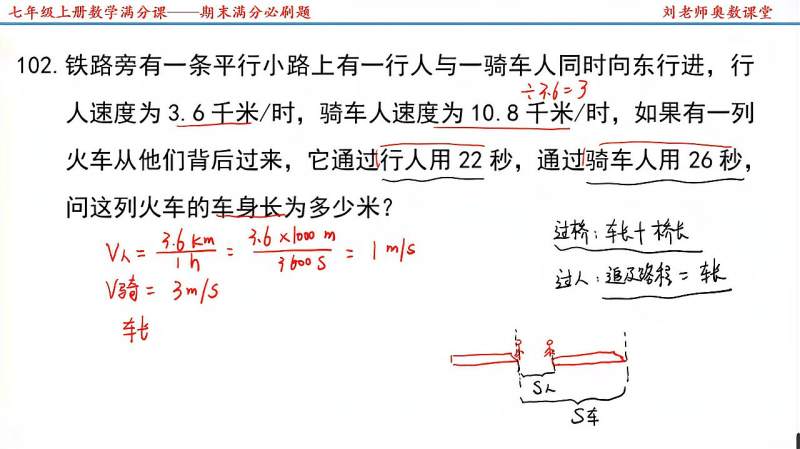 七年级上册数学满分课——期末满分必刷题
刘老师奥数课堂
102. 铁路旁有一条平行小路上有一行人与一骑车人同时向东行进，行
÷3.6=3
人速度为 3.6 千米/时，骑车人速度为 10.8 千米/时，如果有一列
火车从他们背后过来，它通过行人用 22 秒，通过骑车人用 26 秒，
问这列火车的车身长为多少米？
V人 = 3.6 km / 1 h = 3.6 × 1000 m / 3600 s = 1 m/s
V骑 = 3 m/s
车长
过桥：车长+桥长
过人：追及路程 = 车长
S人
S车